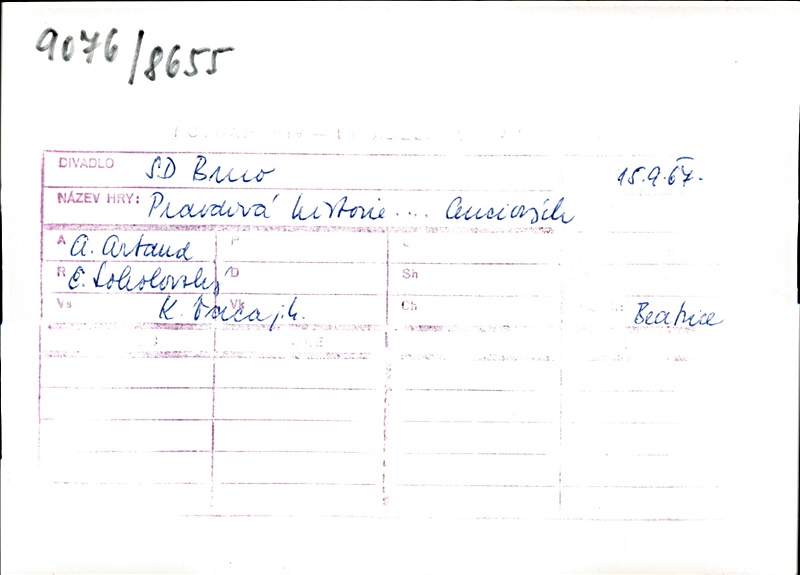 9076/8655
DIVADLO SD Brno 15.9.67.
NÁZEV HRY: Pravdivá historie .... Cenciových
A A. Artaud P
R E. Sokolovský D Sh
Vs K. Vk Ch Beatrice